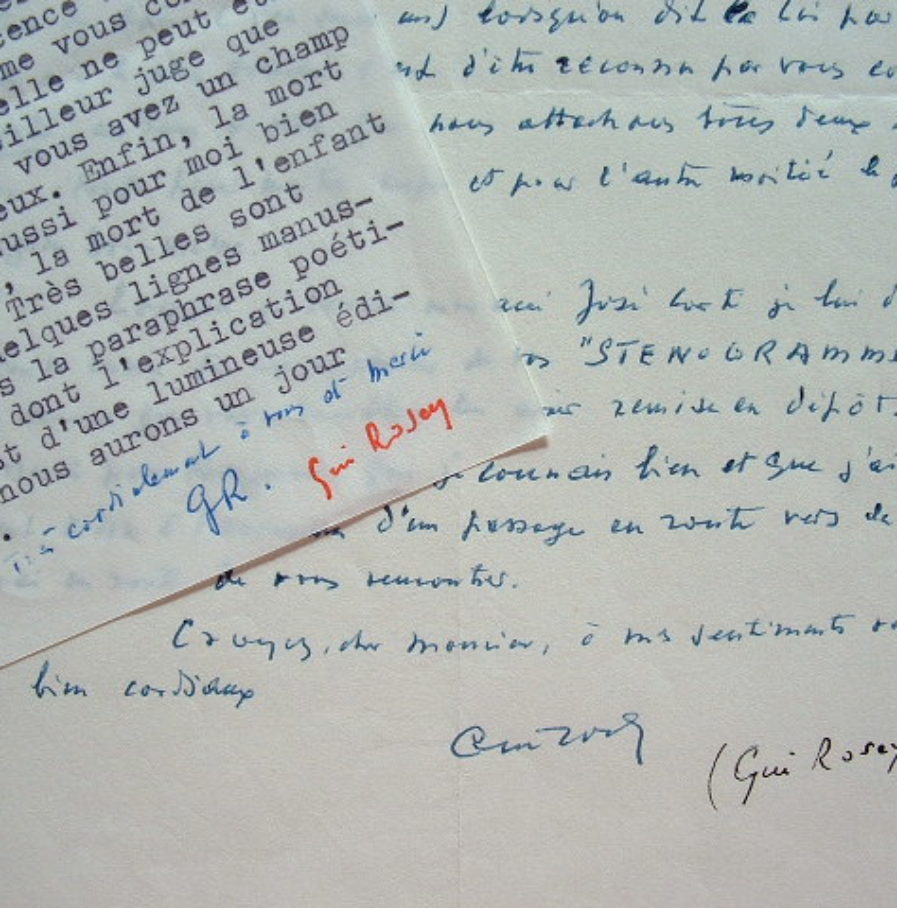 tence
me vous
elle ne peut
eilleur juge que
vous avez un champ
eux. Enfin, la mort
aussi pour moi bien
, la mort de l'enfant
Très belles sont
elques lignes manus-
s la paraphrase poéti-
dont l'explication
st d'une lumineuse édi-
nous aurons un jour
cordialement à vous et merci
GR. Gui Rosey
lorsqu'on dit la loi par
d'être reconnu par vous
nous attachons tous deux
et pour l'autre moitié
José Corti je lui
"STENOGRAMME
remise en dépôt
je connais bien et que j'ai
d'un passage en route vers
de vous rencontrer.
Croyez, cher Monsieur, à mes sentiments
bien cordiaux
(Gui Rosey